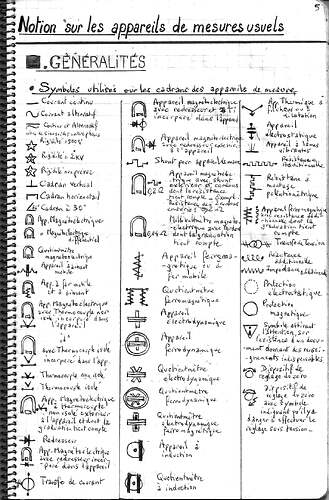 5
Notion sur les appareils de mesures usuels
GÉNÉRALITÉS
Symboles utilisés sur les cadrans des appareils de mesure
Courant continu
Courant alternatif
Rigidité 500V
Rigidité 2KV
Rigidité
Cadran Vertical
Cadran horizontal
Cadran à 30°
App. Magnétoélectrique
Magnétoélectrique
différentiel
Quotientmètre
magnétoélectrique
Appareil à aimant
mobile
App. à fer mobile
App. Magnétoélectrique
avec Thermocouple
l'appareil
avec Thermocouple isolé
incorporé dans l'app.
Thermocouple non isolé
Thermocouple isolé
App. Magnétoélectrique
à thermocouple
non isolé extérieur
à l'appareil et dont la
graduation tient compte
Redresseur
App. Magnétoélectrique
avec redresseur incor-
poré dans l'appareil
Transfo de courant
Appareil magnétoélectrique
avec redresseur
incorporé dans l'app
Appareil magnétoélectrique
avec redresseur
à l'appareil
Shunt pour appareil de mesure
Appareil magnétoélec-
trique avec shunt
extérieur et
dont la résis-
tance
compte.
Millivoltmètre magnéto-
électrique avec
dont la graduation
tient compte.
Appareil ferroma-
gnétique à
fer mobile
Quotientmètre
ferromagnétique
Appareil
électrodynamique
Appareil
ferrodynamique
Quotientmètre
électrodynamique
Quotientmètre
ferrodynamique
Quotientmètre
électrodynamique
ferromagnétique
Appareil à
induction
Quotientmètre
à induction
App. Thermique à
dilatation
Appareil
électrostatique
Appareil à lames
vibrantes
Résistance
Résistance à
montage
potentiométrique
Appareil ferromagnétique
résistance
dont la
graduation tient
compte
Transfo Tension
Résistance
additionnelle
Impédance additionnelle
Protection
électrostatique
Protection
magnétique
Symbole attirant
l'attention sur
l'existence d'un docu-
ment donnant des rensei-
gnements indispensables
Dispositif de
réglage de zéro
Dispositif de
réglage de zéro
avec symbole
indiquant qu'il y a
danger à effectuer le
réglage sous tension